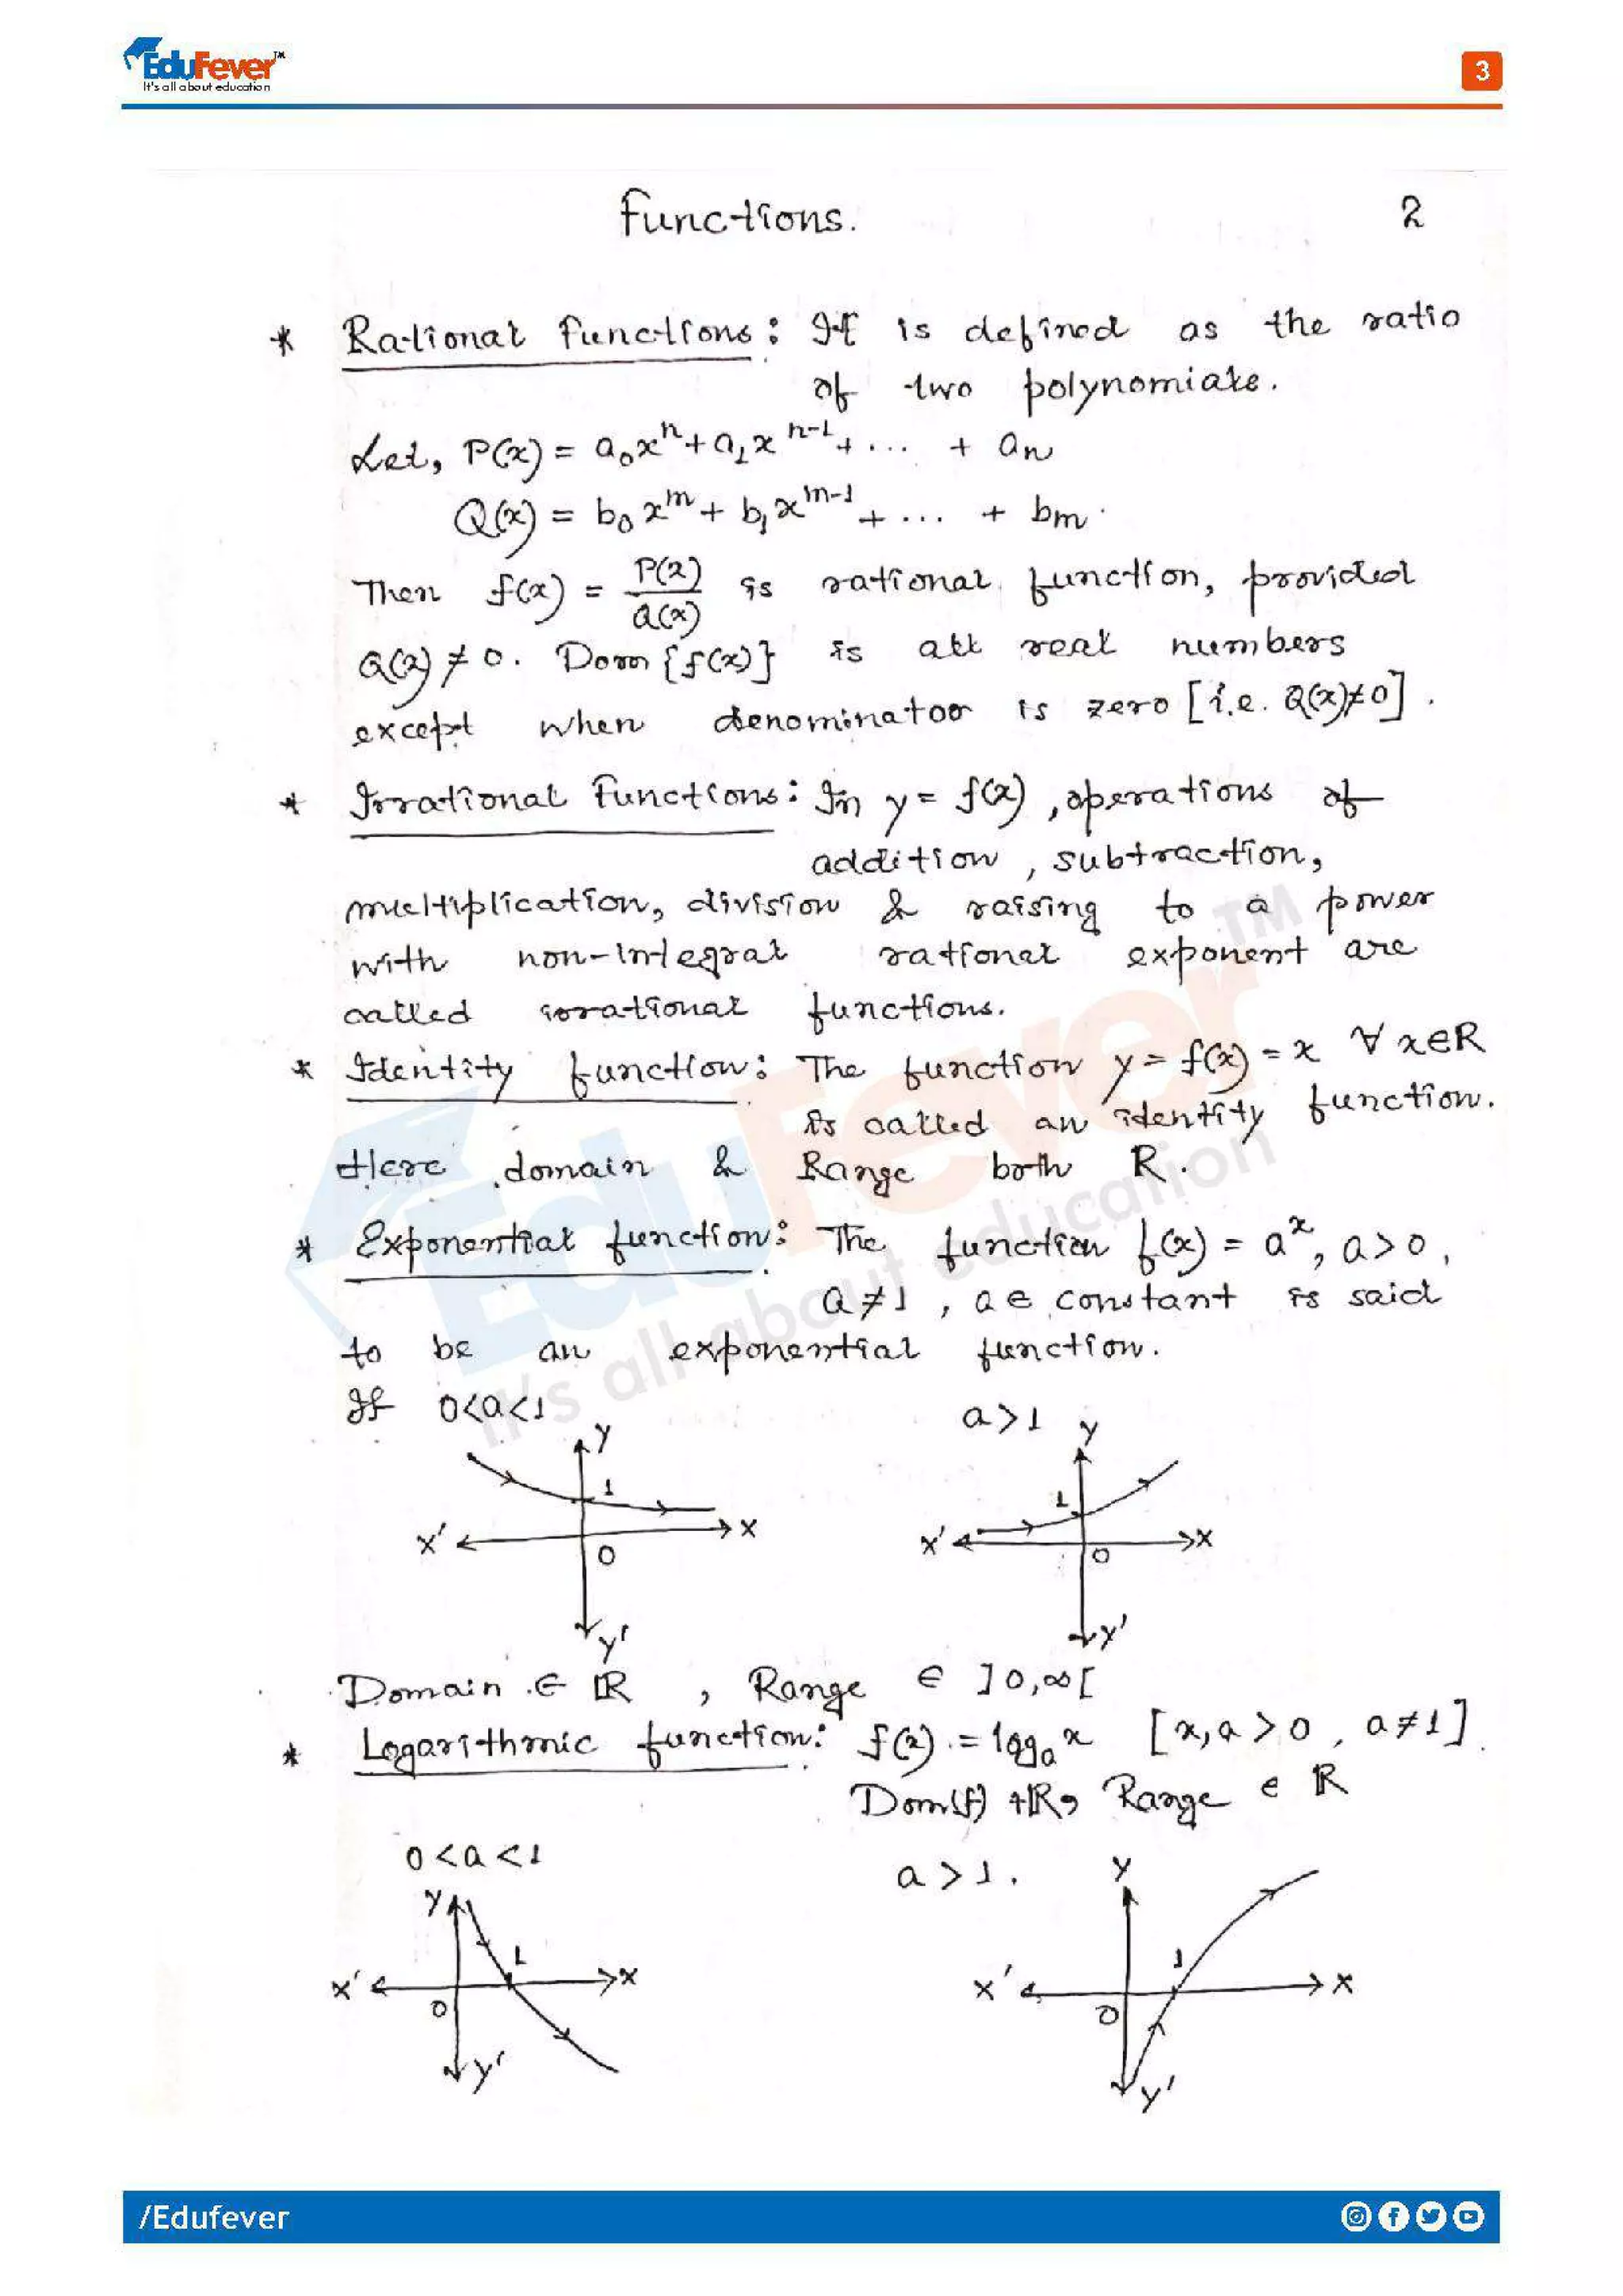 EduFever™
It's all about education
3
Functions.
2
* Rational Functions : It is defined as the ratio
of two polynomials.
Let, P(x) = a₀xⁿ + a₁xⁿ⁻¹ + ... + aₙ
Q(x) = b₀xᵐ + b₁xᵐ⁻¹ + ... + bₘ.
Then f(x) = P(x)/Q(x) is rational function, provided
Q(x) ≠ 0. Dom {f(x)} is all real numbers
except when denominator is zero [i.e. Q(x)≠0].
* Irrational Functions : In y = f(x), operations of
addition, subtraction,
multiplication, division & raising to a power
with non-integral rational exponent are
called irrational functions.
* Identity function : The function y = f(x) = x ∀ x∈R
is called an identity function.
Here domain & Range both R.
* Exponential function : The function f(x) = aˣ, a > 0,
a ≠ 1, a ∈ constant is said
to be an exponential function.
If 0<a<1
a>1
Y
1
X'
X
O
Y'
Y
1
X'
X
O
Y'
Domain ∈ ℝ, Range ∈ ]0,∞[
* Logarithmic function : f(x) = logₐx [x, a > 0, a ≠ 1].
Dom(f) +ℝ, Range ∈ ℝ
0 < a < 1
a > 1.
Y
1
X'
X
O
Y'
Y
1
X'
X
O
Y'
EduFever™
It's all about education
/Edufever